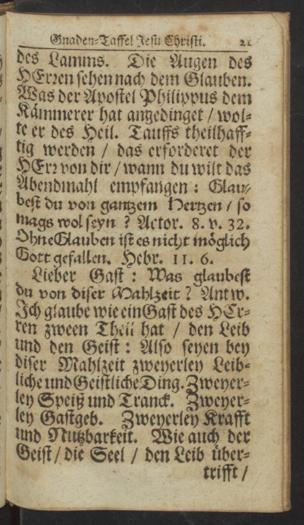 Gnaden-Taffel Jesu Christi. 21
des Lamms. Die Augen des
HErren sehen nach dem Glauben.
Was der Apostel Philippus dem
Kämmerer hat angedinget / wol-
te er des Heil. Tauffs theilhaff-
tig werden / das erforderet der
HErr von dir / wann du wilt das
Abendmahl empfangen: Glau-
best du von gantzem Hertzen / so
mags wol seyn? Actor. 8. v. 32.
Ohne Glauben ist es nicht möglich
Gott gefallen. Hebr. 11. 6.
Lieber Gast: Was glaubest
du von diser Mahlzeit? Antw.
Ich glaube wie ein Gast des HEr-
ren zween Theil hat / den Leib
und den Geist: Also seyen bey
diser Mahlzeit zweyerley Leib-
liche und Geistliche Ding. Zweyer-
ley Speiß und Tranck. Zweyer-
ley Gastgeb. Zweyerley Krafft
und Nutzbarkeit. Wie auch der
Geist / die Seel / den Leib über-
trifft /